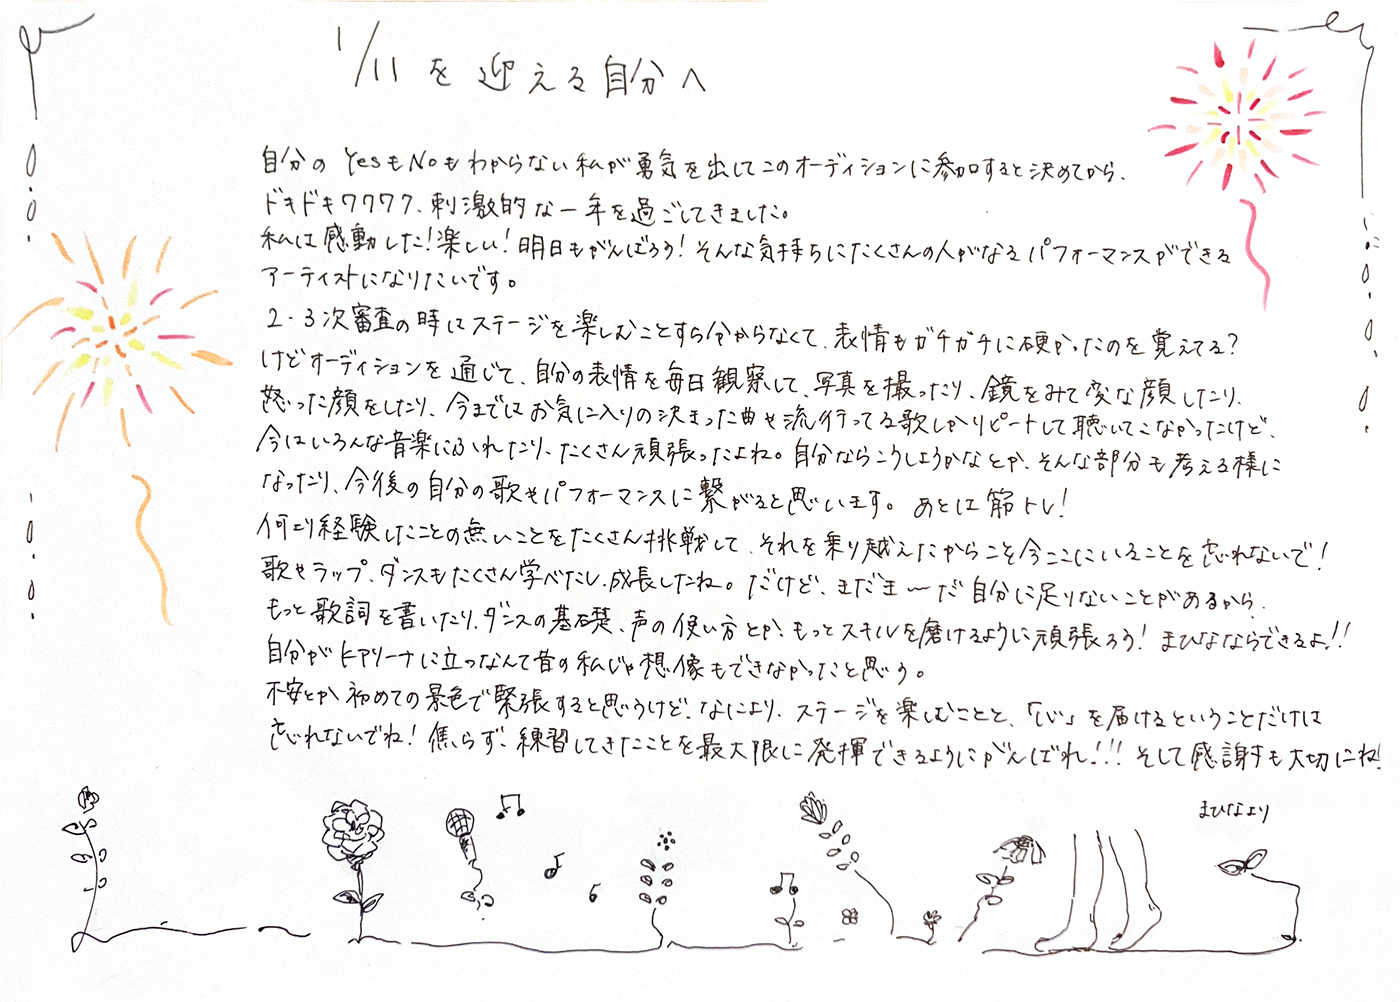 1/11を迎える自分へ
自分のYesもNoもわからない私が勇気を出してこのオーディションに参加すると決めてから、
ドキドキワクワク、刺激的な一年を過ごしてきました。
私は感動した！楽しい！明日もがんばろう！そんな気持ちにたくさんの人がなるパフォーマンスができる
アーティストになりたいです。
2・3次審査の時はステージを楽しむことすら分からなくて、表情もガチガチに硬かったのを覚えてる？
けどオーディションを通じて、自分の表情を毎日観察して、写真を撮ったり、鏡をみて変な顔したり、
怒った顔をしたり、今まではお気に入りの決まった曲や流行ってる歌しかリピートして聴いてこなかったけど、
今はいろんな音楽にふれたり、たくさん頑張ったよね。自分ならこうしようかなとか、そんな部分も考える様に
なったり、今後の自分の歌やパフォーマンスに繋がると思います。あとは筋トレ！
何より経験したことの無いことをたくさん挑戦して、それを乗り越えたからこそ今ここにいることを忘れないで！
歌やラップ、ダンスもたくさん学べたし、成長したね。だけど、まだま〜だ自分に足りないことがあるから、
もっと歌詞を書いたり、ダンスの基礎、声の使い方とか、もっとスキルを磨けるように頑張ろう！まひなならできるよ！！
自分がKアリーナに立つなんて昔の私じゃ想像もできなかったと思う。
不安とか初めての景色で緊張すると思うけど、なにより、ステージを楽しむことと、「心」を届けるということだけは
忘れないでね！焦らず、練習してきたことを最大限に発揮できるようにがんばれ！！！そして感謝も大切にね！
まひなより